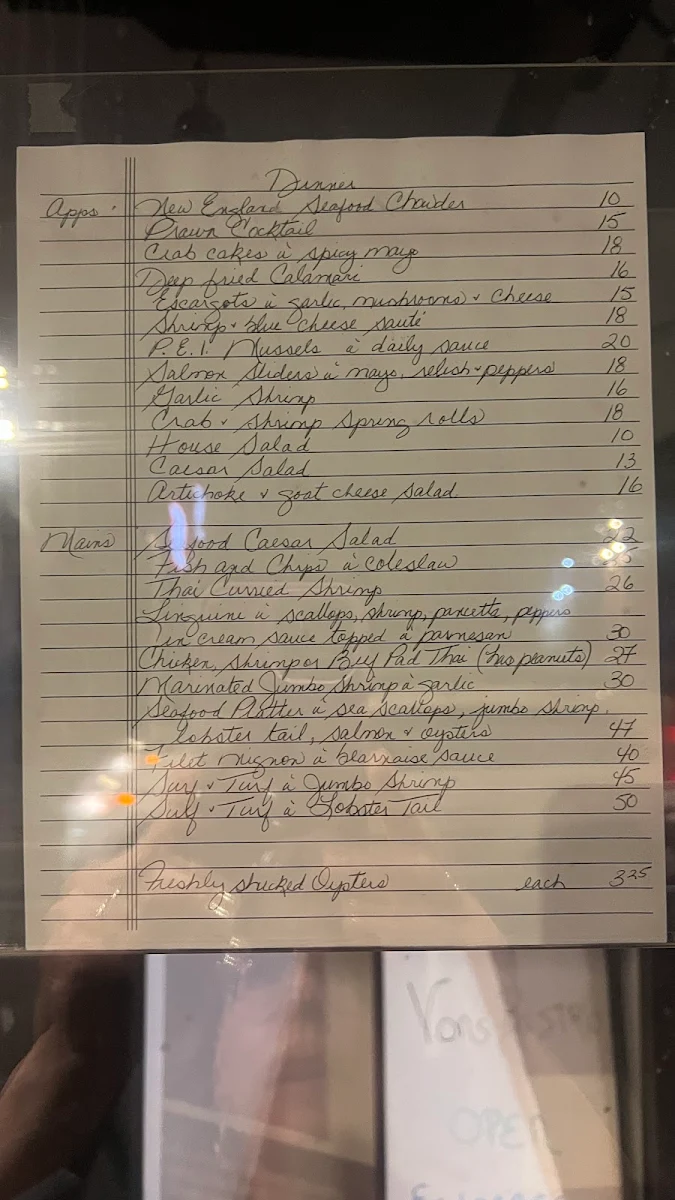 Dinner
Apps. New England Seafood Chowder 10
Prawn Cocktail 15
Crab cakes à spicy mayo 18
Deep fried Calamari 16
Escargots à garlic, mushrooms + cheese 15
Shrimp + blue cheese sauté 18
P.E.I. Mussels à daily sauce 20
Salmon Sliders à mayo, relish + peppers 18
Garlic Shrimp 16
Crab + Shrimp Spring rolls 18
House Salad 10
Caesar Salad 13
Artichoke + goat cheese salad 16
Mains Seafood Caesar Salad 22
Fish and Chips à coleslaw
Thai Curried Shrimp 26
Linguine à scallops, shrimp, pancetta, peppers
in cream sauce topped à parmesan 30
Chicken, shrimp or Beef Pad Thai (has peanuts) 27
Marinated Jumbo Shrimp à garlic 30
Seafood Platter à sea scallops, jumbo shrimp,
lobster tail, salmon + oysters 47
Filet mignon à bearnaise sauce 40
Surf + Turf à Jumbo Shrimp 45
Surf + Turf à Lobster Tail 50
Freshly shucked Oysters each 3 25
OPEN